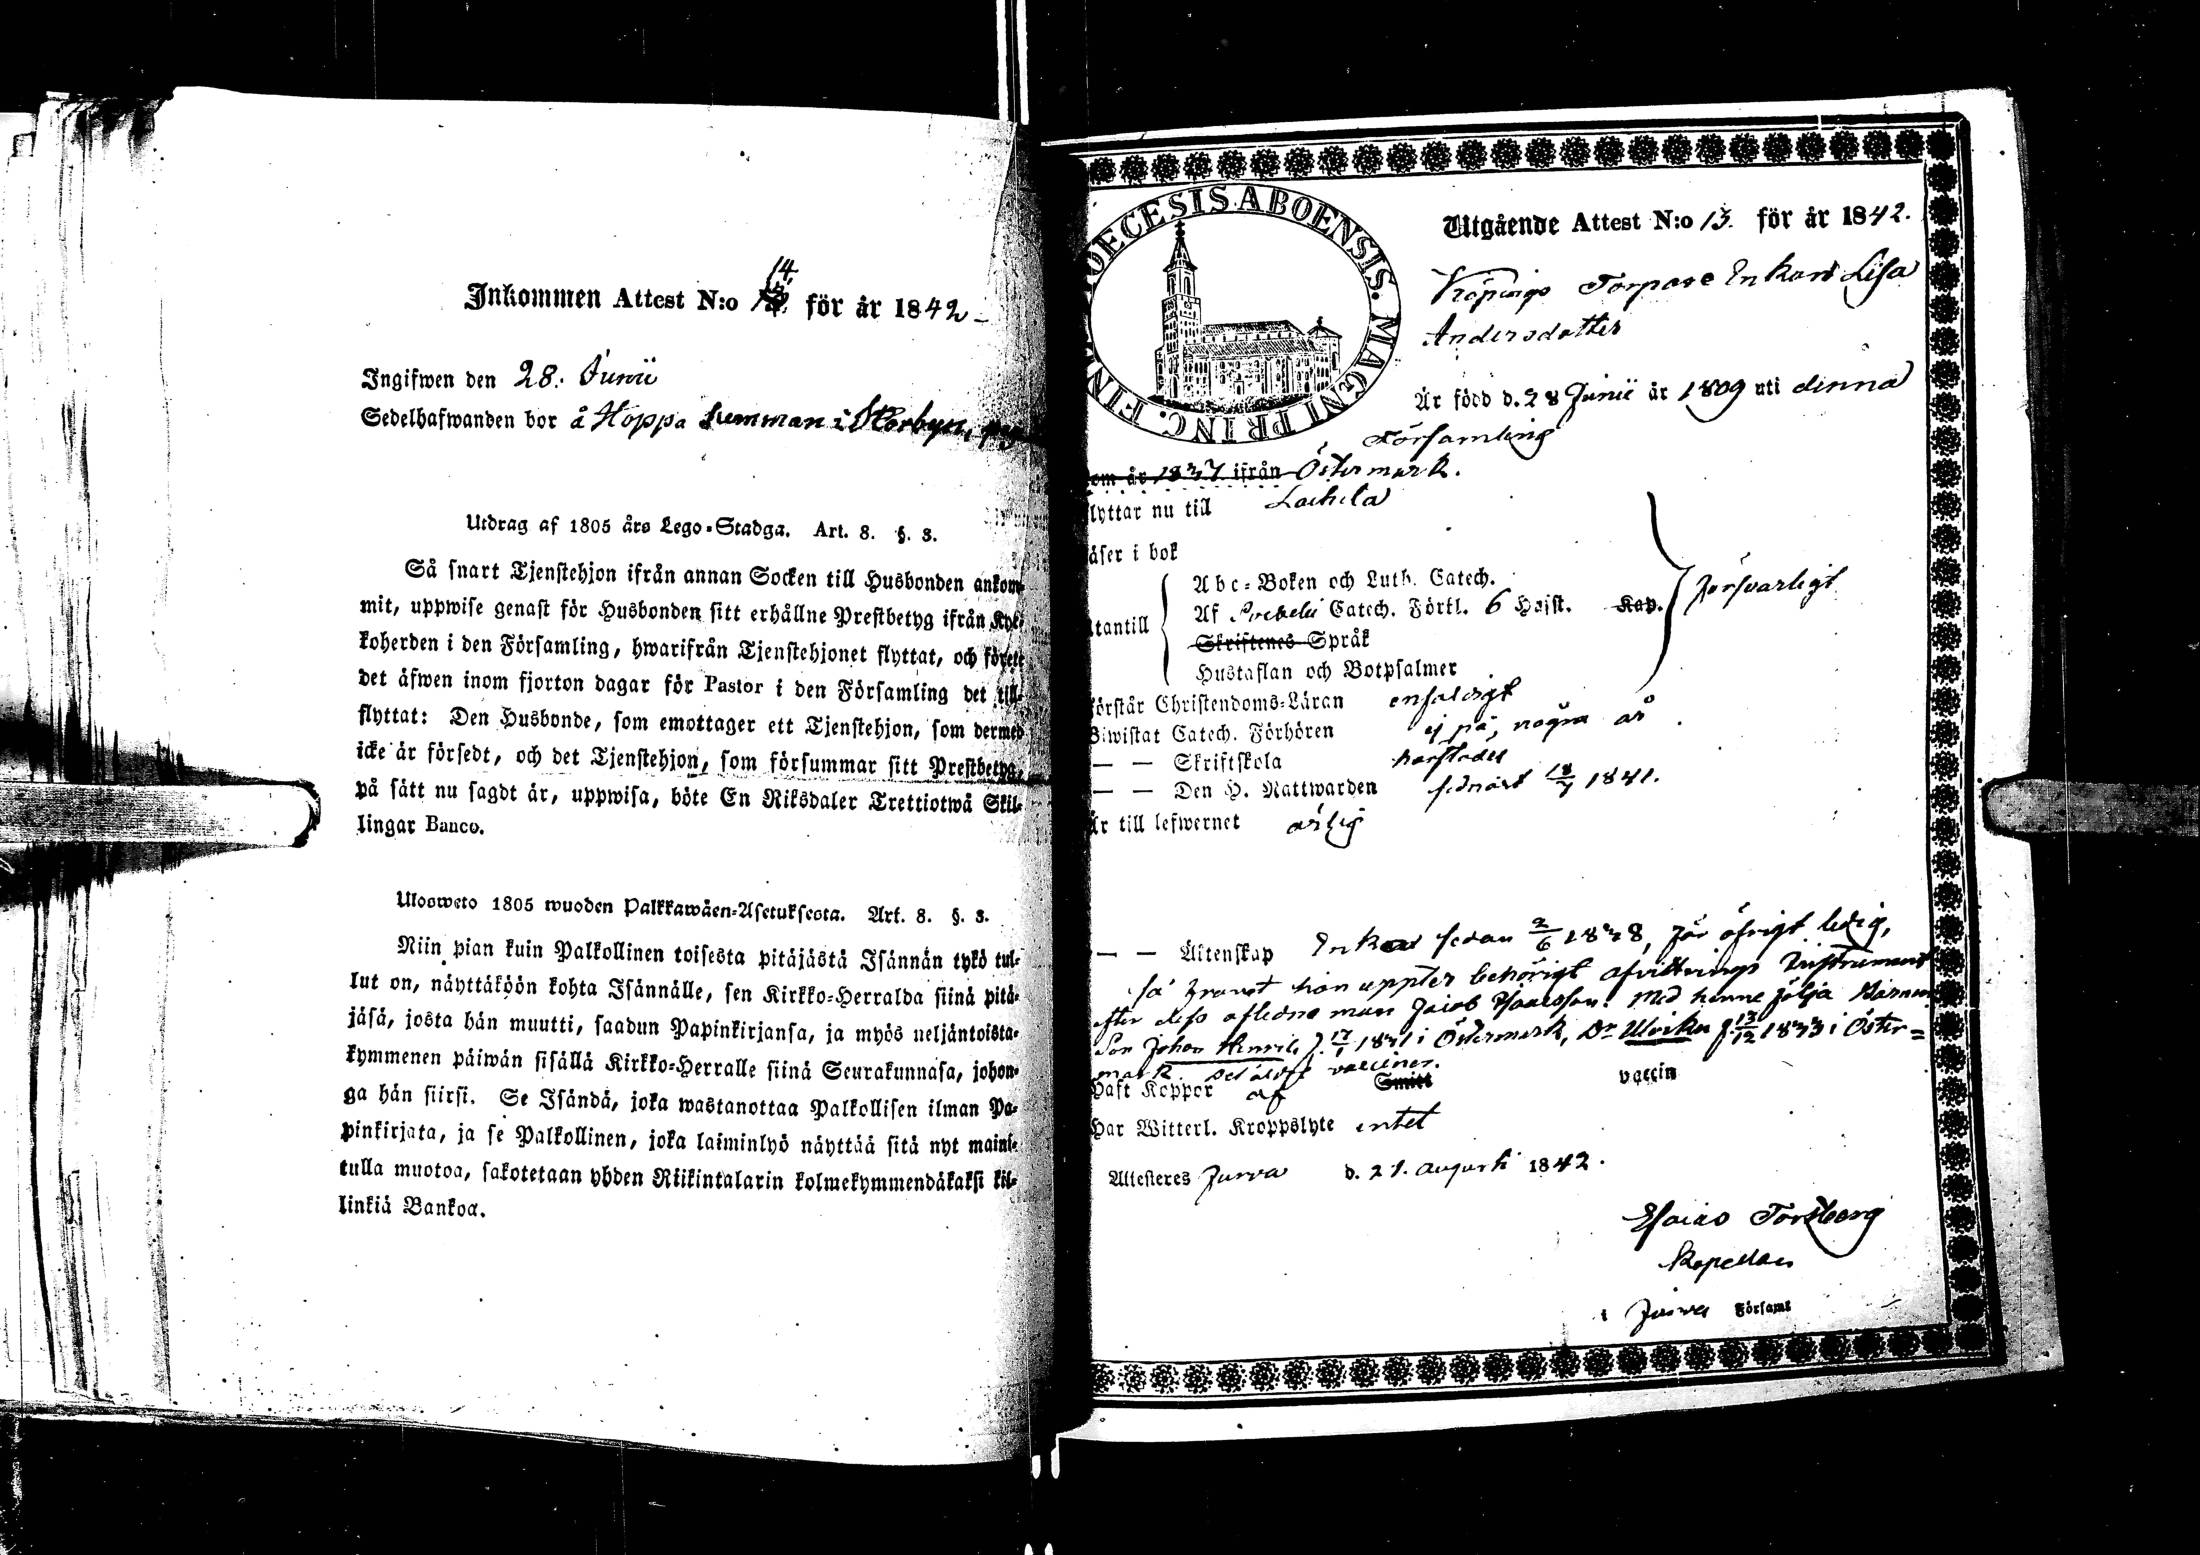 Inkommen Attest N:o 14. för år 1842
Ingifwen den 28. Junii
Sedelhafwanden bor å Hoppa hemman i Storbyn,
Utdrag af 1805 års Lego-Stadga. Art. 8. §. 3.
Så snart Tjenstehjon ifrån annan Socken till Husbonden ankom-
mit, uppwise genast för Husbonden sitt erhållne Prestbetyg ifrån Kyr-
koherden i den Församling, hwarifrån Tjenstehjonet flyttat, och förete
det äfwen inom fjorton dagar för Pastor i den Församling det till-
flyttat: Den Husbonde, som emottager ett Tjenstehjon, som dermed
icke är försedt, och det Tjenstehjon, som försummar sitt Prestbetyg,
på sätt nu sagdt är, uppwisa, böte En Riksdaler Trettiotwå Skil-
lingar Banco.
Ulosweto 1805 wuoden Palkkawäen-Asetuksesta. Art. 8. §. 3.
Niin pian kuin Palkollinen toisesta pitäjästä Isännän tykö tul-
lut on, näyttäköön kohta Isännälle, sen Kirkko-Herralda siinä pitä-
jäsä, josta hän muutti, saadun Papinkirjansa, ja myös neljäntoista-
kymmenen päiwän sisällä Kirkko-Herralle siinä Seurakunnasa, johon-
ga hän siirsi. Se Isändä, joka wastanottaa Palkollisen ilman Pa-
pinkirjata, ja se Palkollinen, joka laiminlyö näyttää sitä nyt maini-
tulla muotoa, sakotetaan yhden Riikintalarin kolmekymmendäkaksi kil-
linkiä Bankoa.
DIOECESIS ABOENSIS. MAGNI PRINC. FIN
Utgående Attest N:o 13. för år 1842.
Torpare Enkan Lisa
Andersdotter
Är född d. 28 Junii år 1809 uti denna
Församling
om år 1837 ifrån Östermark.
lyttar nu till Laihela
äser i bok
Abc-Boken och Luth. Catech.
Af Svebelii Catech. Förkl. 6 Hufst. Kap.
försvarligt
tantill
Skriftenes Språk
Hustaflan och Botpsalmer
örstår Christendoms-Läran enfaldigt
Biwistat Catech. Förhören ej på några år
— — Skriftskola
— — Den H. Nattwarden sednast 18/7 1841.
Är till lefwernet ärlig
— — Äktenskap Enka sedan 2/6 1838, för öfrigt ledig,
så framt hon uppter behörigt afvittrings Instrument
efter dess aflidna man Jacob Isaacsson. Med henne följa Barnen
Son Johan Henric f. 17/1 1831 i Östermark, Dr Ulrika f. 13/12 1833 i Öster=
mark vacciner.
Haft Koppor af Smitt vaccin
Har Witterl. Kroppslyte intet
Attesteres Jurva d. 21. augusti 1842.
Esaias Forsberg
Kapellan
i Jurva Församl